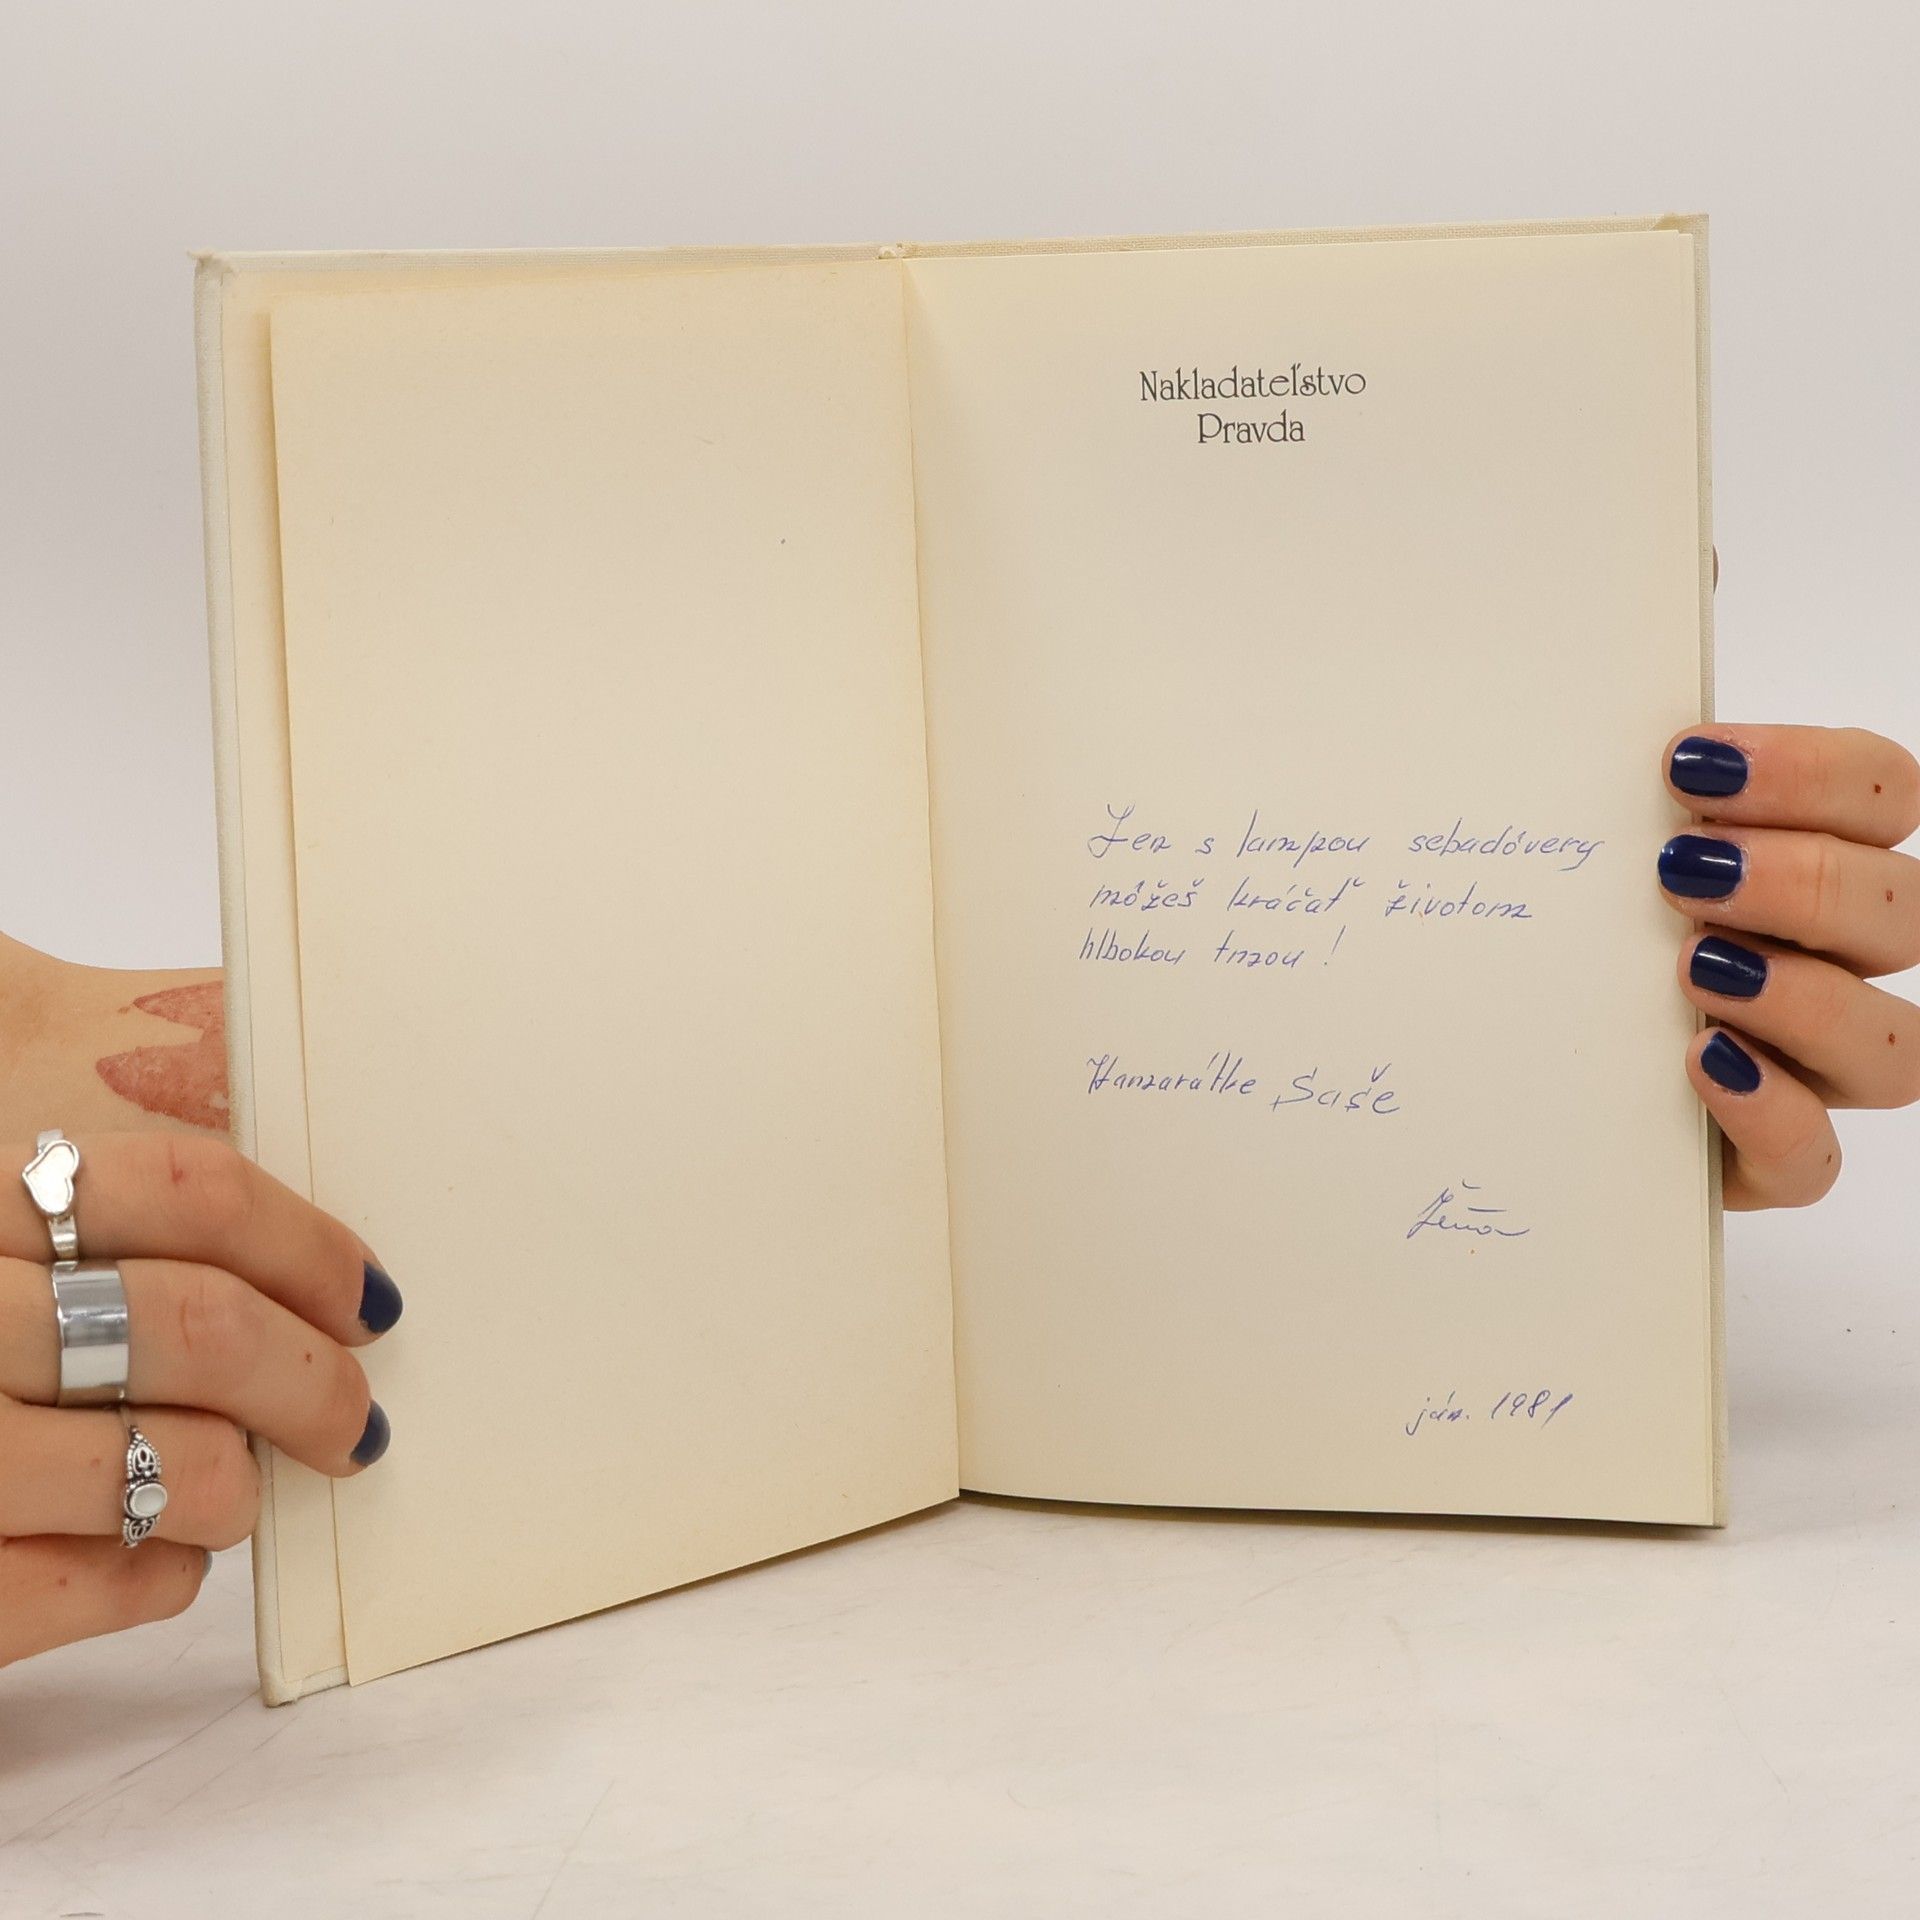 Nakladateľstvo
Pravda
Len s lampou sebadôvery
môžeš kráčať životom
hlbokou tmou !
Kamarátke Saše
Žeňa
ján. 1981